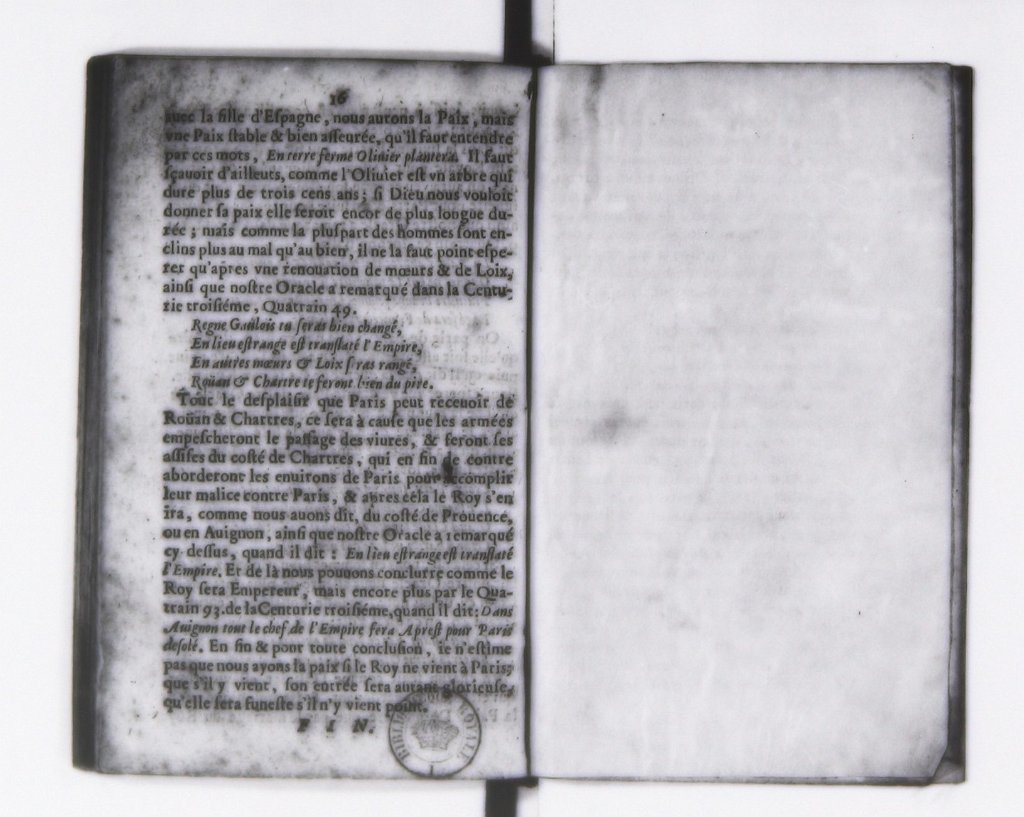 16
auec la fille d'Eſpagne, nous aurons la Paix, mais
vne Paix ſtable & bien aſſeurée, qu'il faut entendre
par ces mots, En terre ferme Oliuier plantera. Il faut
ſçauoir d'ailleurs, comme l'Oliuier eſt vn arbre qui
dure plus de trois cens ans; ſi Dieu nous vouloit
donner ſa paix elle ſeroit encor de plus longue du-
rée; mais comme la pluſpart des hommes ſont en-
clins plus au mal qu'au bien, il ne la faut point eſpe-
rer qu'apres vne renouation de mœurs & de Loix,
ainſi que noſtre Oracle a remarqué dans la Centu-
rie troiſiéme, Quatrain 49.
Regne Gaulois tu ſeras bien changé,
En lieu eſtrange eſt tranſlaté l'Empire,
En autres mœurs & Loix ſeras rangé,
Roüan & Chartre te feront bien du pire.
Tout le deſplaiſir que Paris peut receuoir de
Roüan & Chartres, ce ſera à cauſe que les armées
empeſcheront le paſſage des viures, & feront ſes
aſſiſes du coſté de Chartres, qui en fin de contre
aborderont les enuirons de Paris pour accomplir
leur malice contre Paris, & apres cela le Roy s'en
ira, comme nous auons dit, du coſté de Prouence,
ou en Auignon, ainſi que noſtre Oracle a remarqué
cy-deſſus, quand il dit: En lieu eſtrange eſt tranſlaté
l'Empire. Et de là nous pouuons conclurre comme le
Roy ſera Empereur, mais encore plus par le Qua-
train 93. de la Centurie troiſiéme, quand il dit: Dans
Auignon tout le chef de l'Empire fera Apreſt pour Paris
deſolé. En fin & pour toute concluſion, ie n'eſtime
pas que nous ayons la paix ſi le Roy ne vient à Paris;
que s'il y vient, ſon entrée ſera autant glorieuſe,
qu'elle ſera funeſte s'il n'y vient point.
F I N.